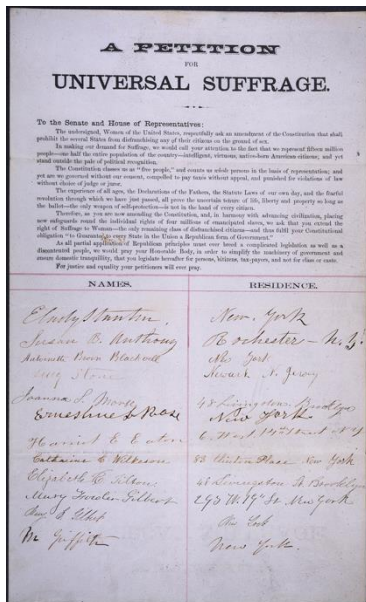 A PETITION
FOR
UNIVERSAL SUFFRAGE.
To the Senate and House of Representatives:
The undersigned, Women of the United States, respectfully ask an amendment of the Constitution that shall
prohibit the several States from disfranchising any of their citizens on the ground of sex.
In making our demand for Suffrage, we would call your attention to the fact that we represent fifteen million
people—one half the entire population of the country—intelligent, virtuous, native-born American citizens; and yet
stand outside the pale of political recognition.
The Constitution classes us as "free people," and counts us whole persons in the basis of representation; and
yet are we governed without our consent, compelled to pay taxes without appeal, and punished for violations of law
without choice of judge or juror.
The experience of all ages, the Declarations of the Fathers, the Statute Laws of our own day, and the fearful
revolution through which we have just passed, all prove the uncertain tenure of life, liberty and property so long as
the ballot—the only weapon of self-protection—is not in the hand of every citizen.
Therefore, as you are now amending the Constitution, and, in harmony with advancing civilization, placing
new safeguards round the individual rights of four millions of emancipated slaves, we ask that you extend the
right of Suffrage to Woman—the only remaining class of disfranchised citizens—and thus fulfil your Constitutional
obligation "to Guarantee to every State in the Union a Republican form of Government."
As all partial application of Republican principles must ever breed a complicated legislation as well as a
discontented people, we would pray your Honorable Body, in order to simplify the machinery of government and
ensure domestic tranquility, that you legislate hereafter for persons, citizens, tax-payers, and not for class or caste.
For justice and equality your petitioners will ever pray.
NAMES. RESIDENCE.
E Cady Stanton, New York
Susan B. Anthony Rochester - N.Y.
Antoinette Brown Blackwell New York
Lucy Stone Newark N. Jersey
Joanna S. Morse 48 Livingston Brooklyn
Ernestine L Rose New York
Harriet E Eaton 6 West 14th Street N.Y
Catharine C Wilkeson 83 Clinton Place New York
Elizabeth R Tilton 48 Livingston St Brooklyn
Mary Fowler Gilbert 293 W. 19th St New York
Gilbert New York
M Griffith New York.